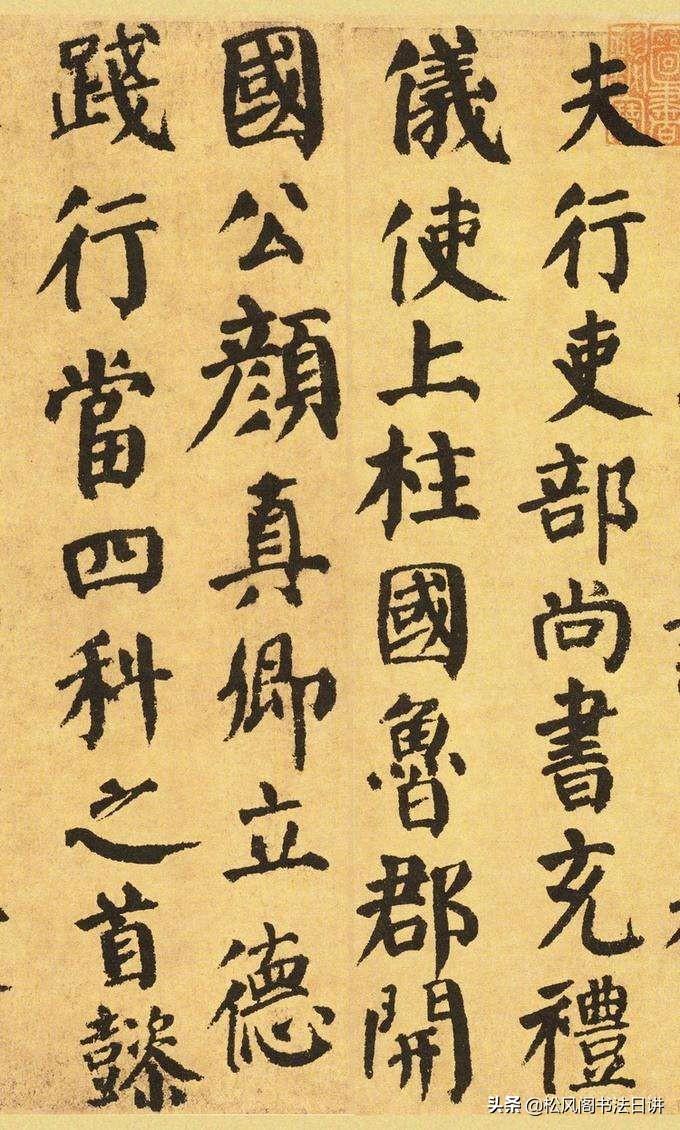 夫行吏部尚書充禮
儀使上柱國魯郡開
國公顏真卿立德
踐行當四科之首懿
头条 @松风阁书法日讲